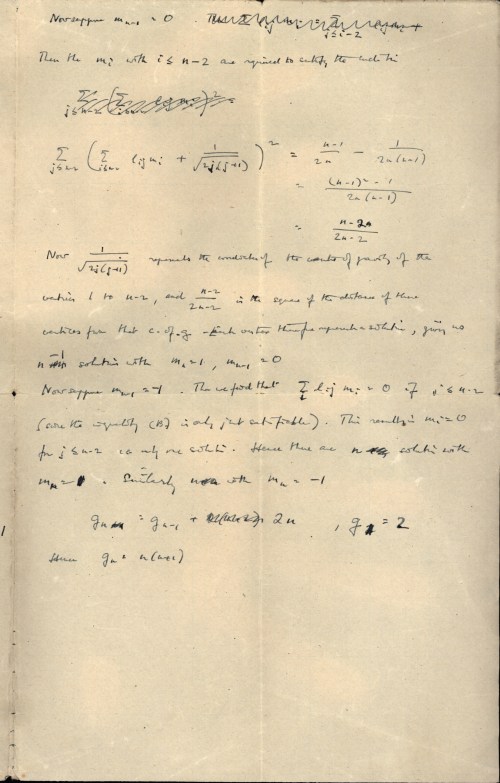 Now suppose m_{n-1} = 0
Then the m_i with i ≤ n-2 are required to satisfy the condition
∑_{j≤n-2} ( ∑_{i≤n-2} l_{ij} m_i + 1/√(2j(j+1)) )² = (n-1)/2n - 1/(2n(n-1))
= ((n-1)² - 1)/(2n(n-1))
= (n-2)/(2n-2)
Now 1/√(2j(j+1)) represents the coordinates of the centre of gravity of the
vertices 1 to n-2, and (n-2)/(2n-2) is the square of the distance of these
vertices from that c. of g. Each vertex therefore represents a solution, giving us
n-1 solutions with m_n = 1, m_{n-1} = 0
Now suppose m_{n-1} = -1. Then we find that ∑ l_{ij} m_i = 0 if j ≤ n-2
(since the inequality (B) is only just satisfiable). This results in m_i = 0
for j ≤ n-2 i.e. only one solution. Hence there are n solutions with
m_n = 1. Similarly n with m_n = -1
g_n = g_{n-1} + 2n , g_1 = 2
Hence g_n = n(n+1)